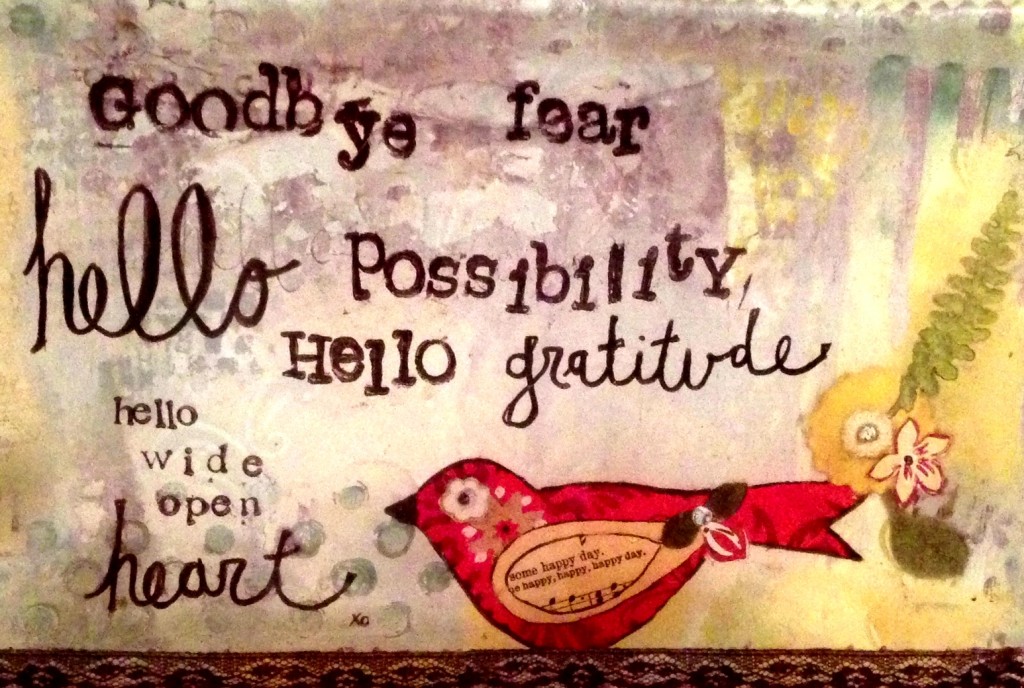 Goodbye fear
hello Possibility,
Hello gratitude
hello
wide
open
heart
xo
some happy day.
be happy, happy, happy day.